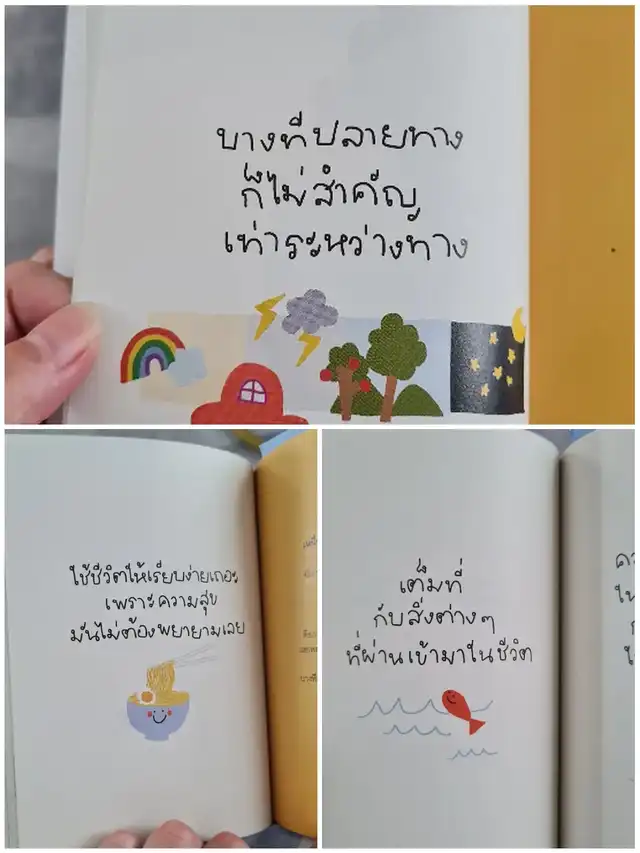 บางทีปลายทาง
ก็ไม่สำคัญ
เท่าระหว่างทาง
ใช้ชีวิตให้เรียบง่ายเถอะ
เพราะความสุข
มันไม่ต้องพยายามเลย
เต็มที่
กับสิ่งต่างๆ
ที่ผ่านเข้ามาในชีวิต